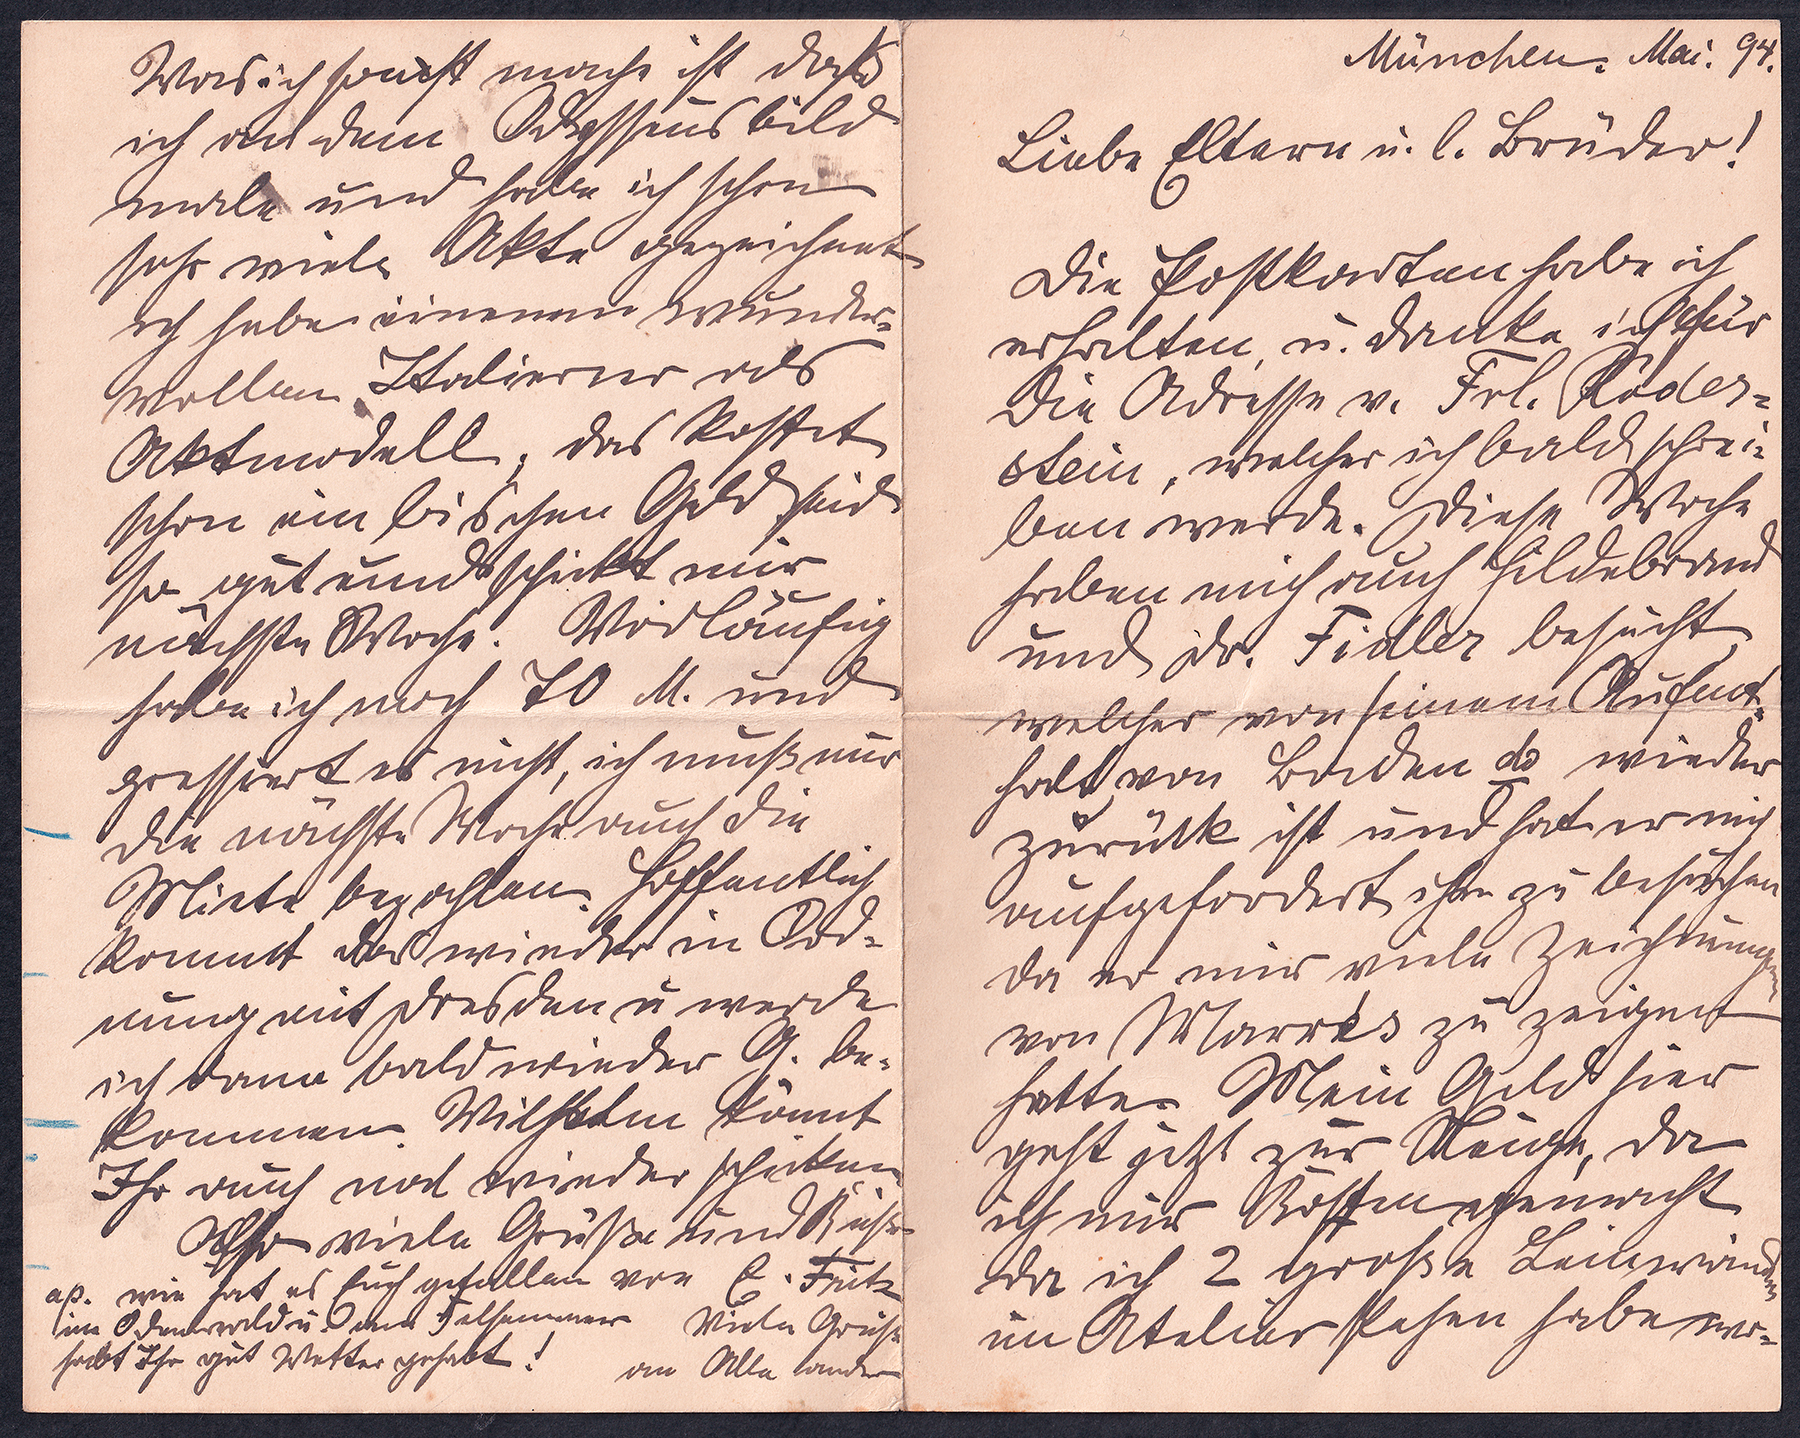 München. Mai. 94.
Liebe Eltern u. l. Brüder!
Die Postkarten habe ich
erhalten, u. danke ich für
die Adresse v. Frl. Röder-
stein, welcher ich bald schrei-
ben werde. Diese Woche
haben mich auch Hildebrand
und Dr. Fidler besucht
welcher von seinem Aufent-
halt von Baden wieder
zurück ist und hat er mich
aufgefordert ihn zu besuchen
da er mir viele Zeichnungen
von Marrés zu zeigen
hatte. Mein Geld hier
geht jetzt zur Neige, da
ich mir Kosten gemacht
da ich 2 große Leinwänden
im Atelier stehen habe wo-
Was ich sonst mache ist daß
ich an dem Odysseusbild
male und habe ich schon
sehr viele Akte gezeichnet
ich habe einenen wunder-
vollen Italiener als
Aktmodell, das kostet
schon ein bischen Geld seid
so gut und schickt mir
nächste Woche. Vorläufig
habe ich noch 70 M. und
pressiert es nicht, ich muß nur
die nächste Woche auch die
Miete bezahlen. Hoffentlich
kommt das wieder in Ord-
nung mit Dresden u werde
ich dann bald wieder G. be-
kommen. Wilhelm könnt
Ihr auch mal wieder schicken
Also viele Grüße und Küsse
E. Fritz
wie hat es Euch gefallen von
im Odenwald u. dem Felsenmeer
habt Ihr gut Wetter gehabt!
Viele Grüße
an Alle